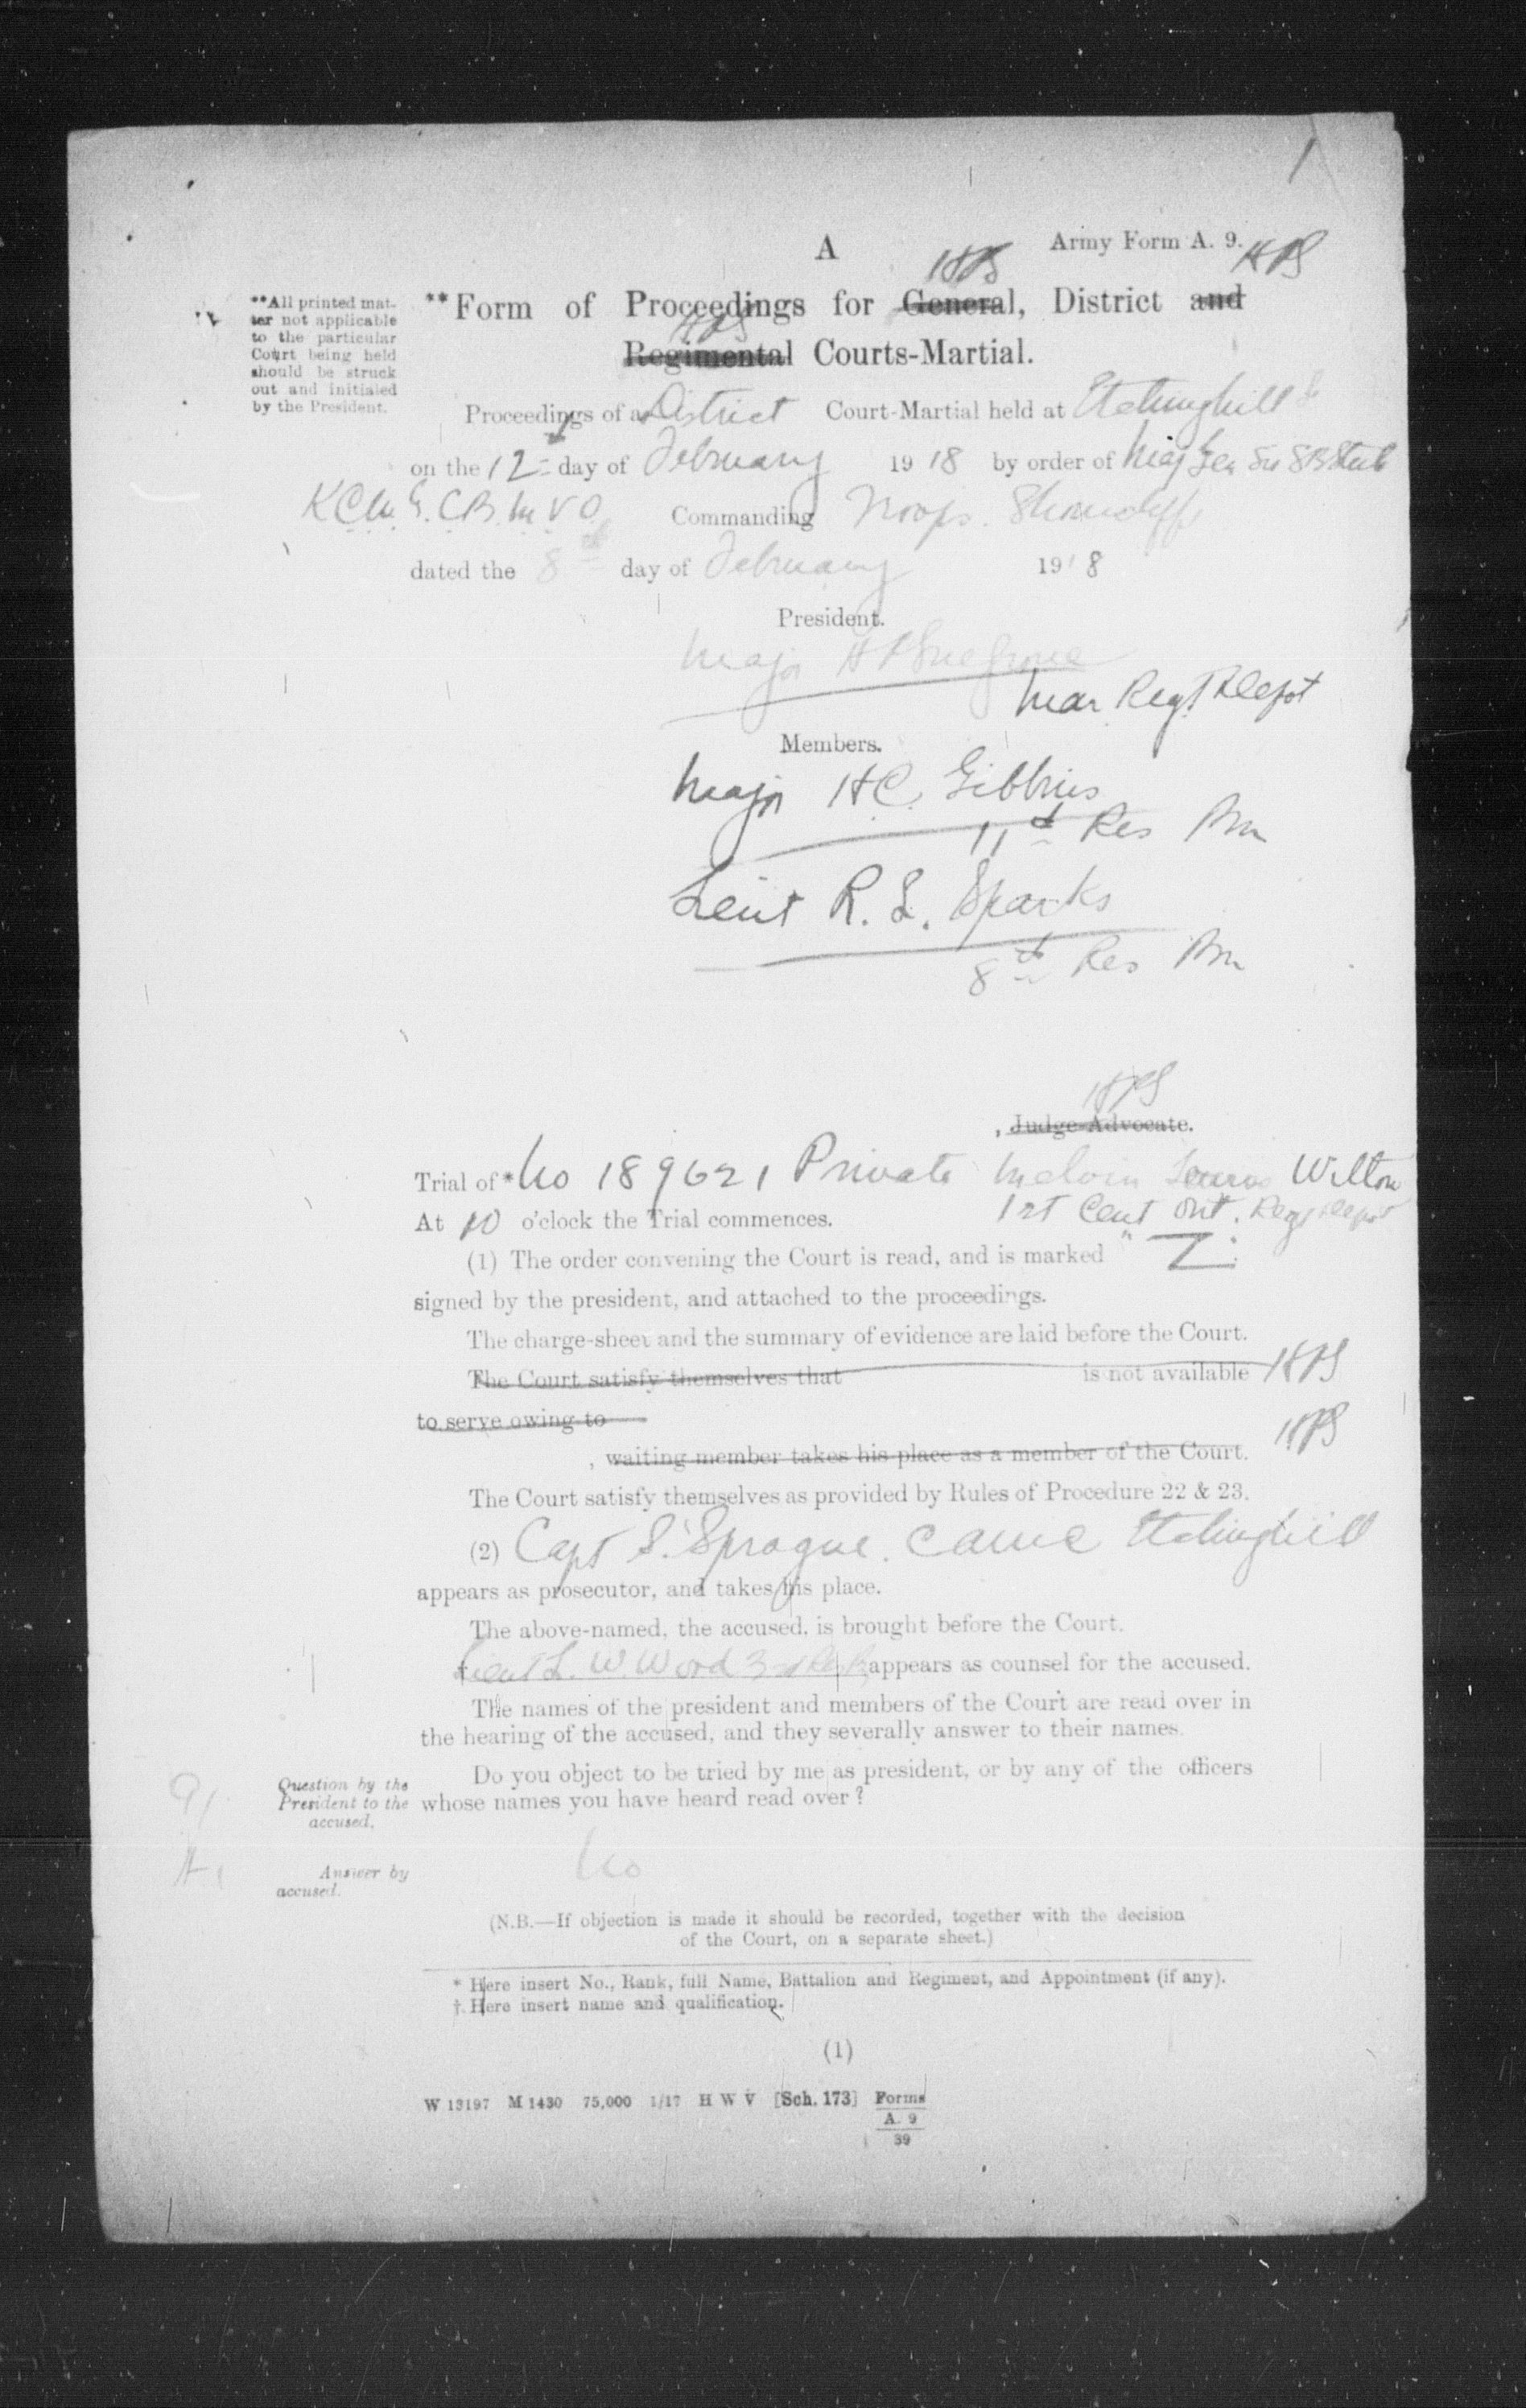 1
A
Army Form A. 9.
HPS HPS
**All printed mat-
ter not applicable
to the particular
Court being held
should be struck
out and initialed
by the President.
**Form of Proceedings for General, District and
HPS
Regimental Courts-Martial.
Proceedings of a District Court-Martial held at Etchinghill
on the 12th day of February 1918 by order of Maj Gen Sir S B Steele
K.C.M.G. C.B. M.V.O. Commanding Troops. Shorncliffe
dated the 8th day of February 1918
President.
Major H P
Regt Depot
Members.
Major H.C. Gibbins
11th Res Bn
Lieut R. L. Sparks
8th Res Bn
HPS
, Judge-Advocate.
Trial of * No 189621 Private Melvin Wilton
At 10 o'clock the Trial commences. 1st Cent Ont. Regt Depot
(1) The order convening the Court is read, and is marked "Z"
signed by the president, and attached to the proceedings.
The charge-sheet and the summary of evidence are laid before the Court.
The Court satisfy themselves that is not available HPS
to serve owing to
, waiting member takes his place as a member of the Court. HPS
The Court satisfy themselves as provided by Rules of Procedure 22 & 23.
(2) Capt S. Sprague. CAMC Etchinghill
appears as prosecutor, and takes his place.
The above-named, the accused, is brought before the Court.
† Lieut L. W Wood 3rd appears as counsel for the accused.
The names of the president and members of the Court are read over in
the hearing of the accused, and they severally answer to their names.
Question by the
President to the
accused.
Do you object to be tried by me as president, or by any of the officers
whose names you have heard read over ?
Answer by
accused.
No
(N.B.—If objection is made it should be recorded, together with the decision
of the Court, on a separate sheet.)
* Here insert No., Rank, full Name, Battalion and Regiment, and Appointment (if any).
†. Here insert name and qualification.
(1)
W 13197 M 1430 75,000 1/17 H W V [Sch. 173] Forms
A. 9
39